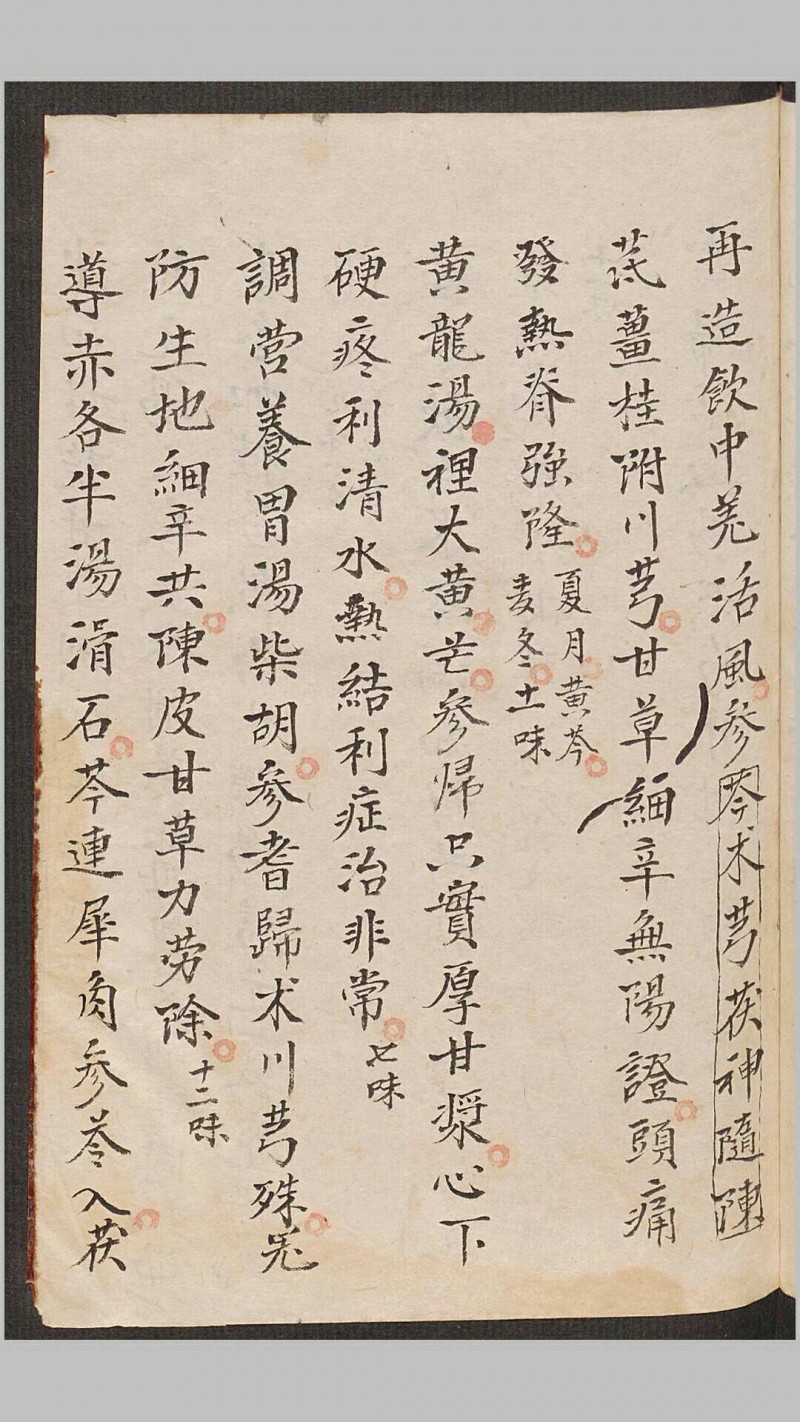 再造飲中羌活風參芩术芎茯神隨陳
芪薑桂附川芎甘草細辛無陽證頭痛
發熱脊強隆
夏月黄芩
麦冬十一味
黄龍湯裡大黄芒參帰只實厚甘漿心下
硬疼利清水熱結利症治非常
七味
調营養胃湯柴胡參耆歸术川芎殊羌
防生地細辛共陳皮甘草力劳除
十二味
導赤各半湯滑石芩連犀角參苓入茯